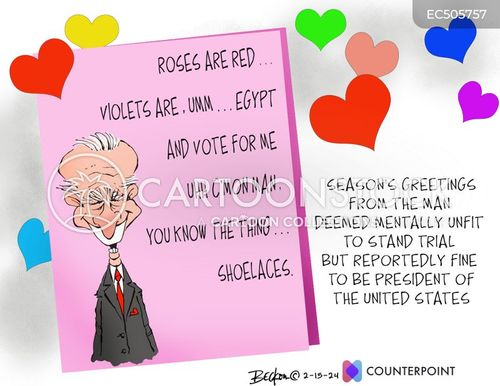 EC505757
ROSES ARE RED ...
VIOLETS ARE, UMM ... EGYPT
AND VOTE FOR ME
UHH, C'MON MAN.
YOU KNOW THE THING ...
SHOELACES.
SEASON'S GREETINGS
FROM THE MAN
DEEMED MENTALLY UNFIT
TO STAND TRIAL
BUT REPORTEDLY FINE
TO BE PRESIDENT OF
THE UNITED STATES
© 2-15-24
COUNTERPOINT